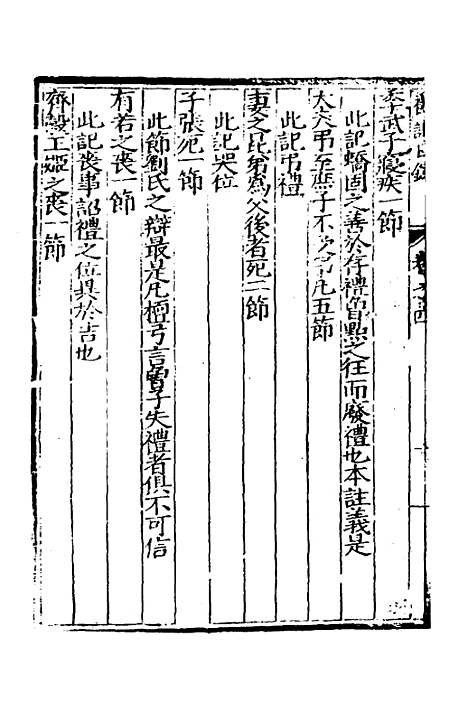 季武子寢疾一節
此記蟜固之善於存禮曾點之狂而廢禮也本註義是
大夫弔至庶子不受弔凡五節
此記弔禮
妻之昆弟為父後者死二節
此記哭位
子張死一節
此節劉氏之辯最是凡檀弓言曾子失禮者俱不可信
有若之喪一節
此記喪事詔禮之位異於吉也
齊穀王姬之喪一節